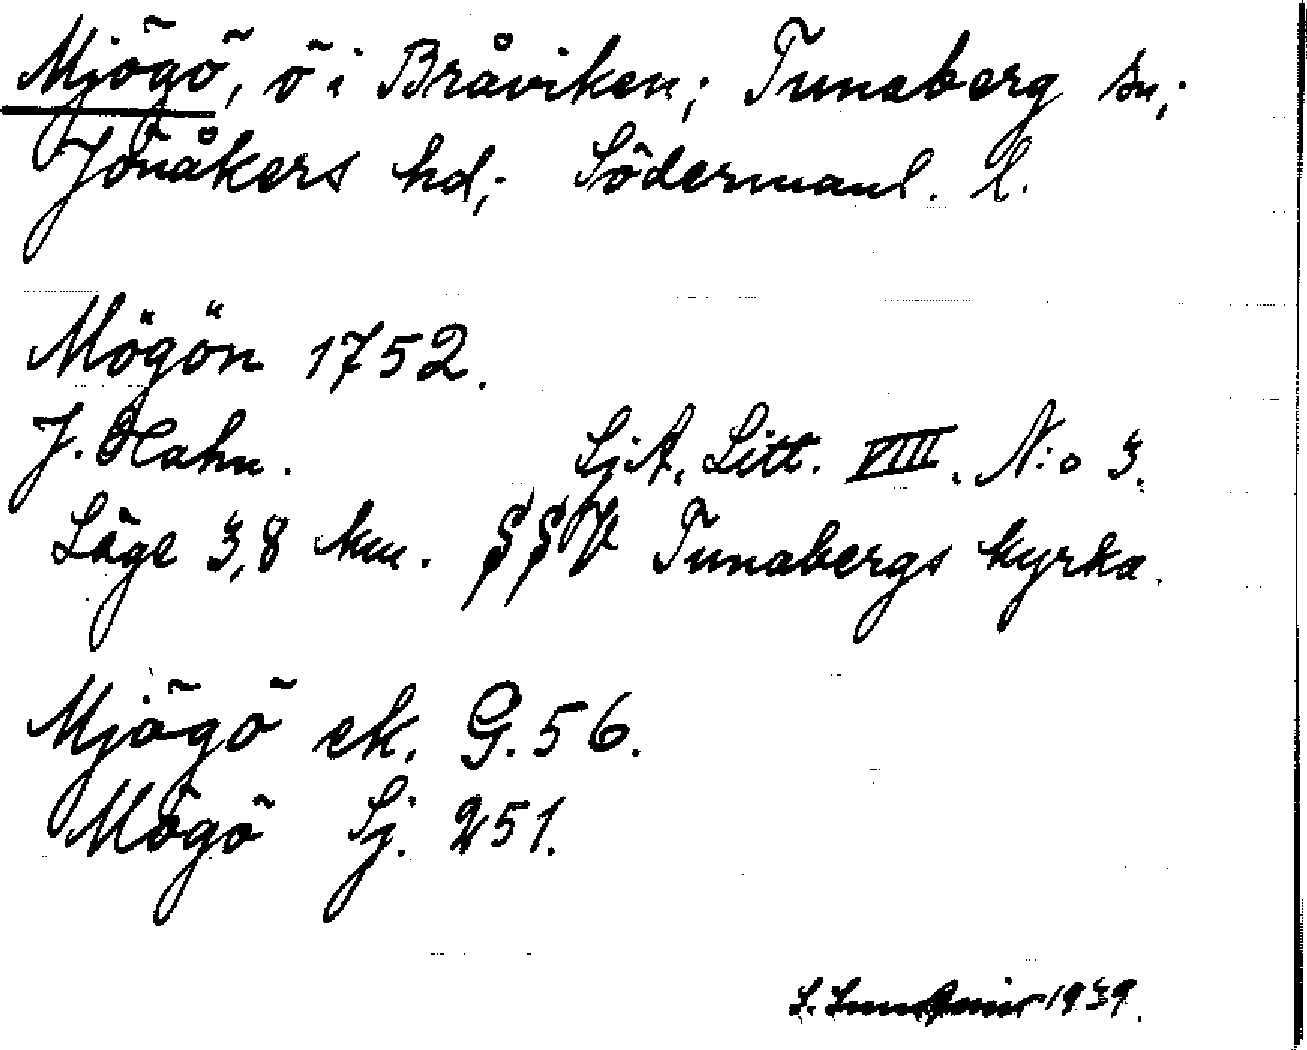 Mjögö, ö i Bråviken; Tunaberg sn;
Jönåkers hd; Södermanl. l.
Mögön 1752.
J. Hahn. SjA. Litt. VIII. N:o 3.
Läge 3,8 km. SSV Tunabergs kyrka.
Mjögö ek. G. 56.
Mögö Sj. 251.
S. 1939.